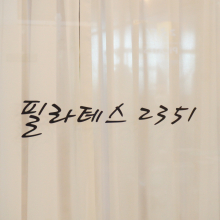 필라테스 2351